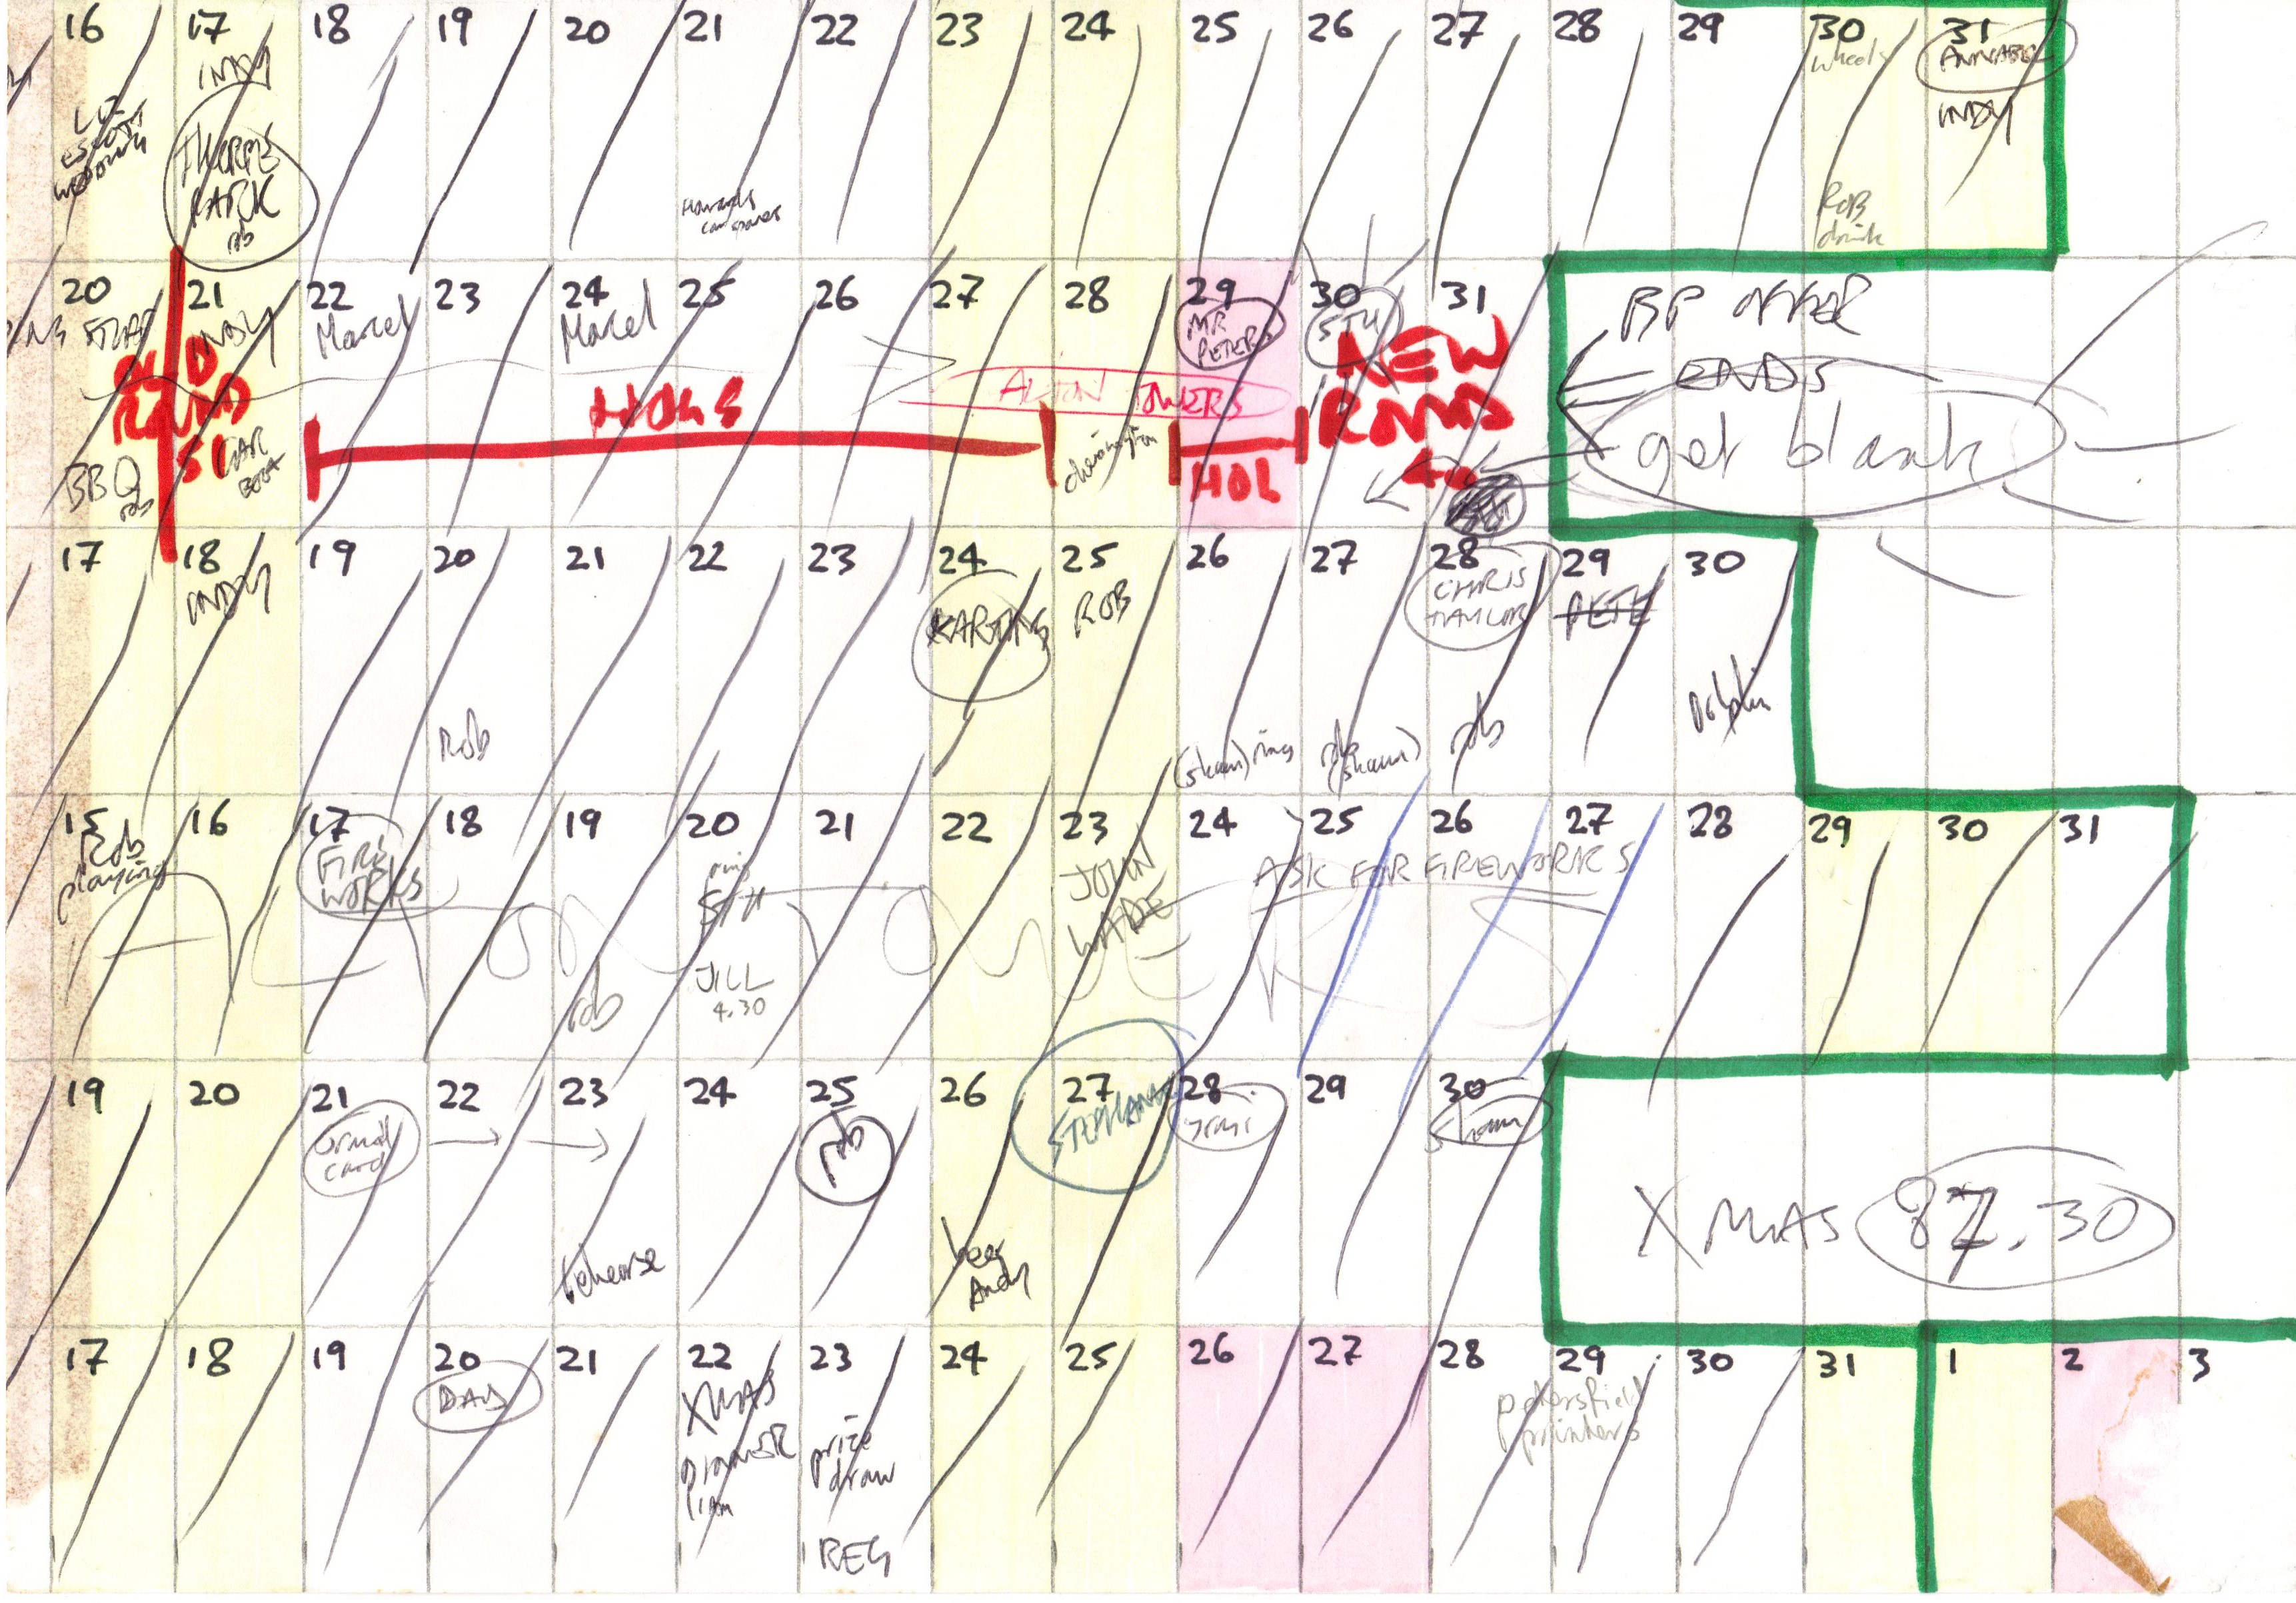 16 17 18 19 20 21 22 23 24 25 26 27 28 29 30 31
INDY
wheels
ANNABEL
INDY
WEDDING
THORPE
PARK
rob
ROB
drink
20 21 22 23 24 25 26 27 28 29 30 31
INDY
Marcel
Marcel
MR
PETERS
STU
BP OFFER
ENDS
get blank
OLD
ROUND
51
HOLS
ALTON TOWERS
NEW
ROUND
40
HOL
BBQ
rob
CAR
BOOT
17 18 19 20 21 22 23 24 25 26 27 28 29 30
INDY
KARTING
ROB
CHRIS
TAYLOR
PETE
Rob
(shaun) ring
rob
(shaun)
rob
Dolphin
15 16 17 18 19 20 21 22 23 24 25 26 27 28 29 30 31
Rob
playing
FIRE
WORKS
ring
STU
JOHN
WADE
ASK FOR FIREWORKS
ALTON TOWERS
rob
JILL
4.30
19 20 21 22 23 24 25 26 27 28 29 30
card
rob
STEPHANIE
Shaun
rehearse
beer
Andy
XMAS 87.30
17 18 19 20 21 22 23 24 25 26 27 28 29 30 31 1 2 3
DAVE
XMAS
DINNER
prize
draw
REG
petersfield
printers